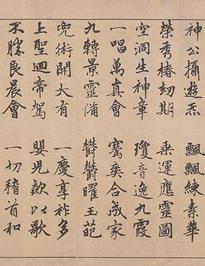 神公攝遊炁　飄飄練素華
榮秀椿劫期　乘運應靈圖
空洞生神章　瓊音逸九霞
一唱萬真會　騫爽合成家
九轉景靈備　鬱鬱曜玉葩
兜術開大有　一慶享祚多
上聖迴帝駕　嬰兒歡以歌
不勝良晨會　一切稽首和